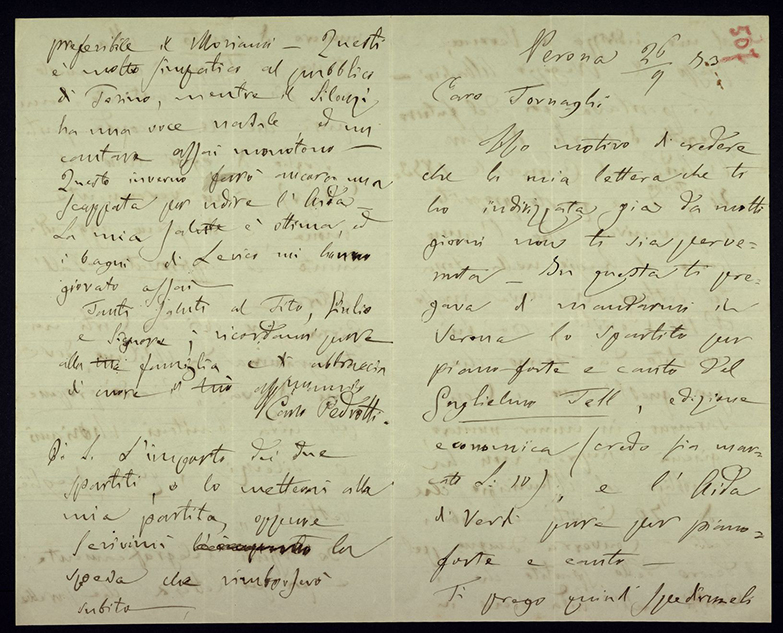 501
Verona 26/9 73.
Caro Tornaghi
Ho motivo di credere
che la mia lettera che ti
ho indirizzata già da molti
giorni non ti sia perve-
nuta — In questa ti pre-
gava di mandarmi in
Verona lo spartito per
piano-forte e canto del
Guglielmo Tell, edizione
economica (credo sia mar-
cato L: 10), e l'Aida
di Verdi pure per piano-
forte e canto —
Ti prego quindi spedirmeli
preferibile il Moriami — Questi
è molto simpatico al pubblico
di Torino, mentre il
ha una voce nasale, ed un
cantare assai monotono —
Questo inverno farò ancora una
scappata per udire l'Aida —
La mia salute è ottima, ed
i bagni di Levico mi hanno
giovato assai —
Tanti saluti al Tito, Giulio
e Signore; ricordami pure
alla tua famiglia e ti abbraccia
di cuore il tuo
Carlo Pedrotti.
P. S. L'importo dei due
spartiti, o lo metterai alla
mia partita, oppure
scrivimi la
spesa che rimborserò
subito —